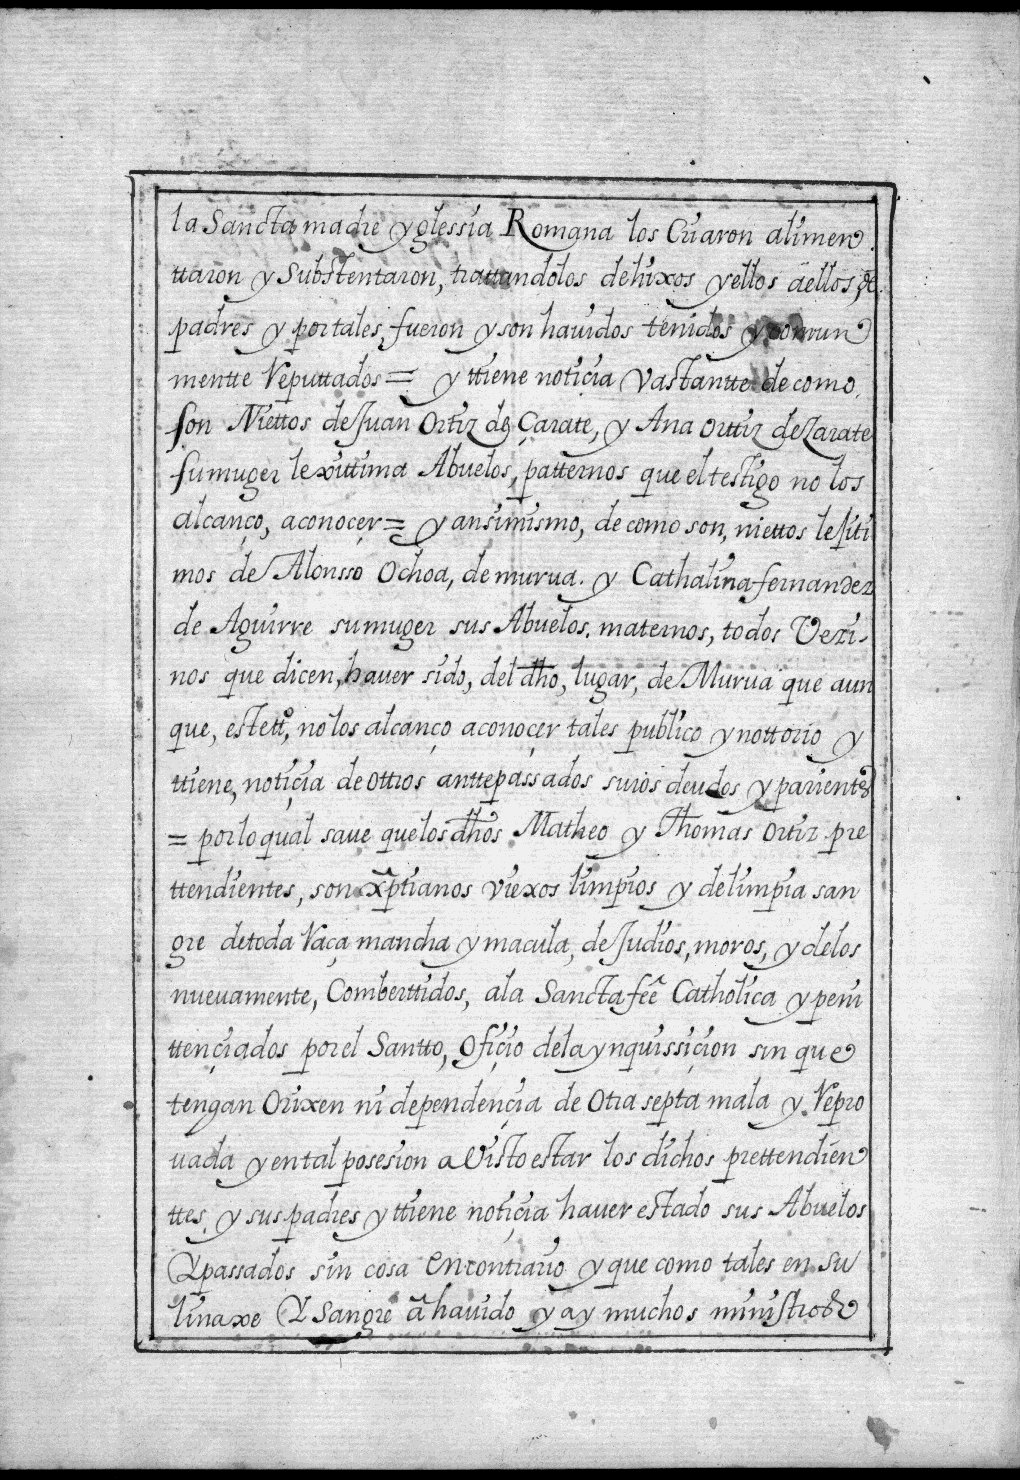 la Sancta madre yglessia Romana los Criaron alimen
ttaron y Substentaron, trattandolos de hixos y ellos aellos, de
padres y por tales, fueron y son havidos tenidos y comun
mentte Reputtados = y ttiene noticia Vastantte de como
son Niettos de Juan Ortiz de Çarate, y Ana Orttiz de Zarate
su muger lexittima Abuelos, patternos que el testigo no los
alcanço, a conoçer = y ansimismo, de como son, niettos lesiti
mos de Alonsso Ochoa, de murua. y Cathalina fernandez
de Aguirre su muger sus Abuelos, maternos, todos Vezi-
nos que dicen, haver sido, del dho, lugar, de Murua que aun
que, este tto, no los alcanço a conoçer tales publico y nottorio y
ttiene, notiçia de ottros anttepassados suios deudos y parientes
= por lo qual save que los dhos Matheo y Thomas Ortiz pre
ttendientes, son xptianos viexos limpios y de limpia san
gre de toda Raça mancha y macula, de Judios, moros, y de los
nuevamente, Comberttidos, a la Sancta fee Catholica y peni
ttençiados por el Santto, Ofiçio de la ynquissiçion sin que
tengan Orixen ni dependençia de Otra septa mala y Repro
uada y en tal posesion a Visto estar los dichos prettendien
ttes, y sus padres y ttiene notiçia haver estado sus Abuelos
Y passados sin cosa en contrario y que como tales en su
linaxe Y Sangre a havido y ay muchos ministros